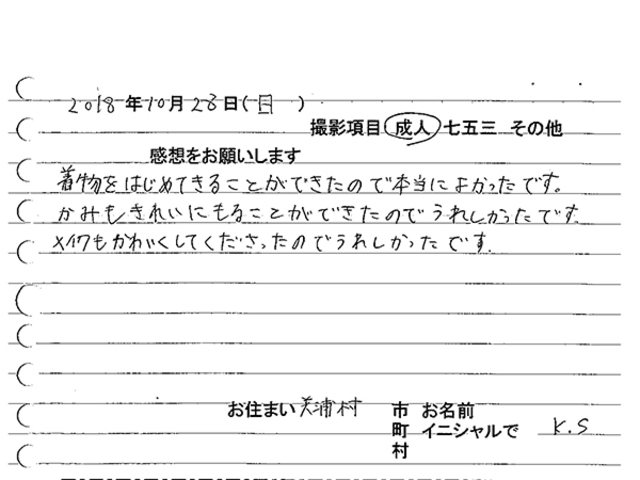 2018年10月28日(日)
撮影項目 成人 七五三 その他
感想をお願いします
着物をはじめてきることができたので本当によかったです。
かみもきれいにもることができたのでうれしかったです.
メイクもかわいくしてくださったのでうれしかったです.
お住まい 美浦村 市 お名前
町 イニシャルで K.S
村